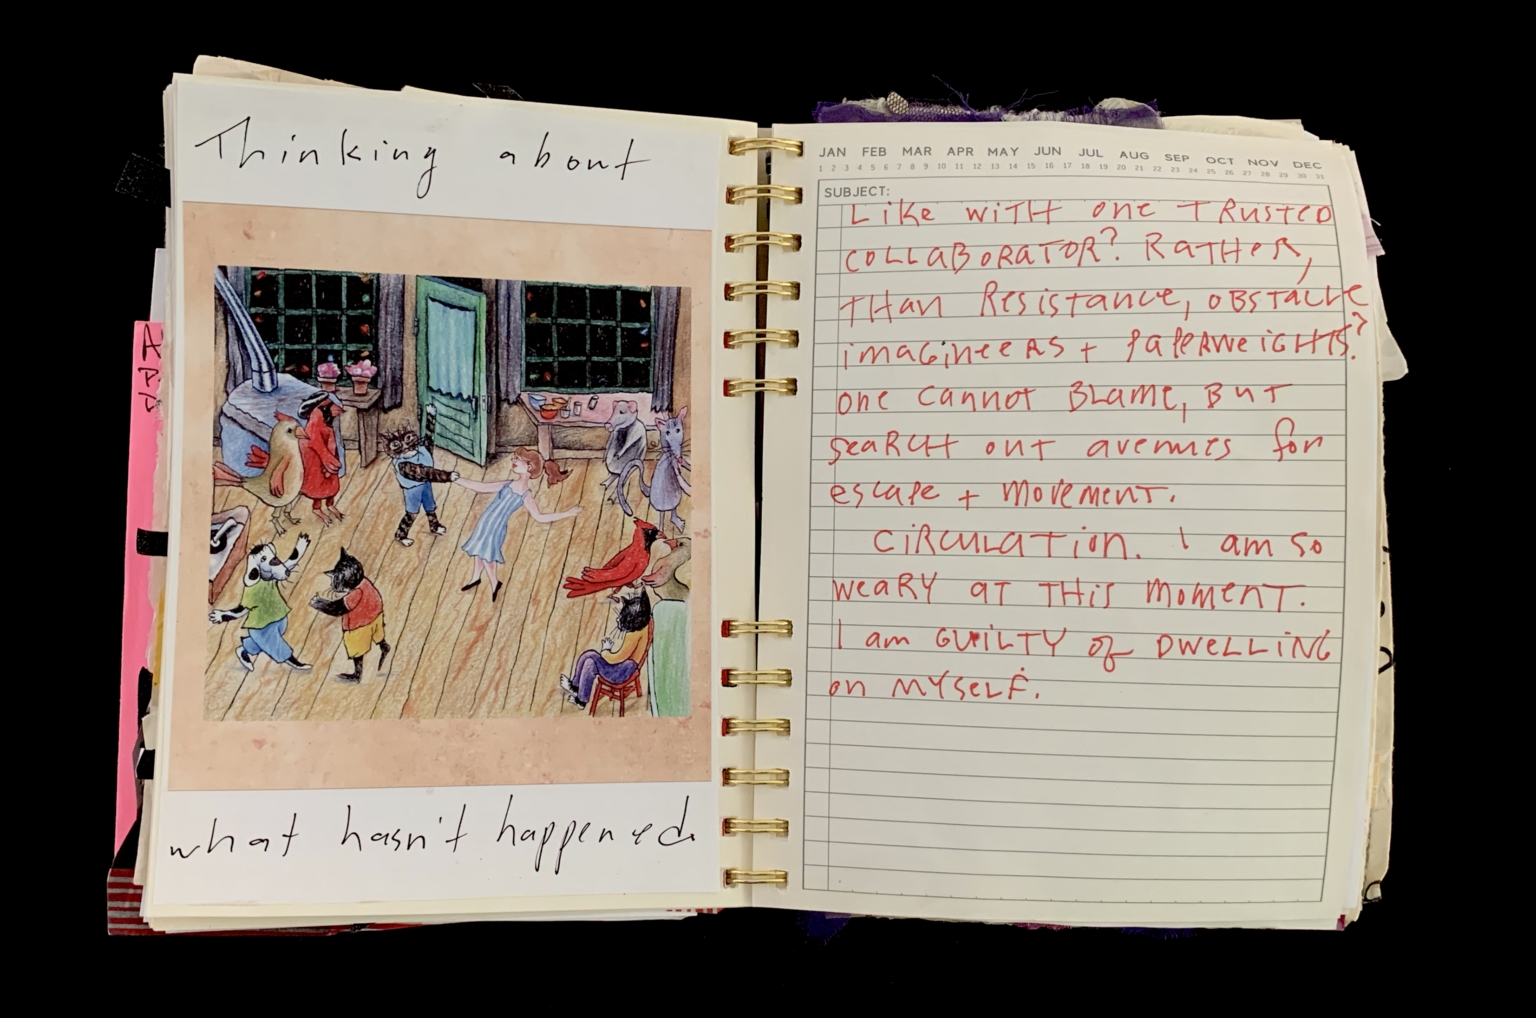 Thinking about
what hasn't happened.
A
JAN FEB MAR APR MAY JUN JUL AUG SEP OCT NOV DEC
1 2 3 4 5 6 7 8 9 10 11 12 13 14 15 16 17 18 19 20 21 22 23 24 25 26 27 28 29 30 31
SUBJECT:
LIKE WITH ONE TRUSTED
COLLABORATOR? RATHER,
THAN RESISTANCE, OBSTACLE
IMAGINEERS + PAPERWEIGHTS?
ONE CANNOT BLAME, BUT
SEARCH OUT AVENUES FOR
ESCAPE + MOVEMENT.
CIRCULATION. I AM SO
WEARY AT THIS MOMENT.
I AM GUILTY OF DWELLING
ON MYSELF.